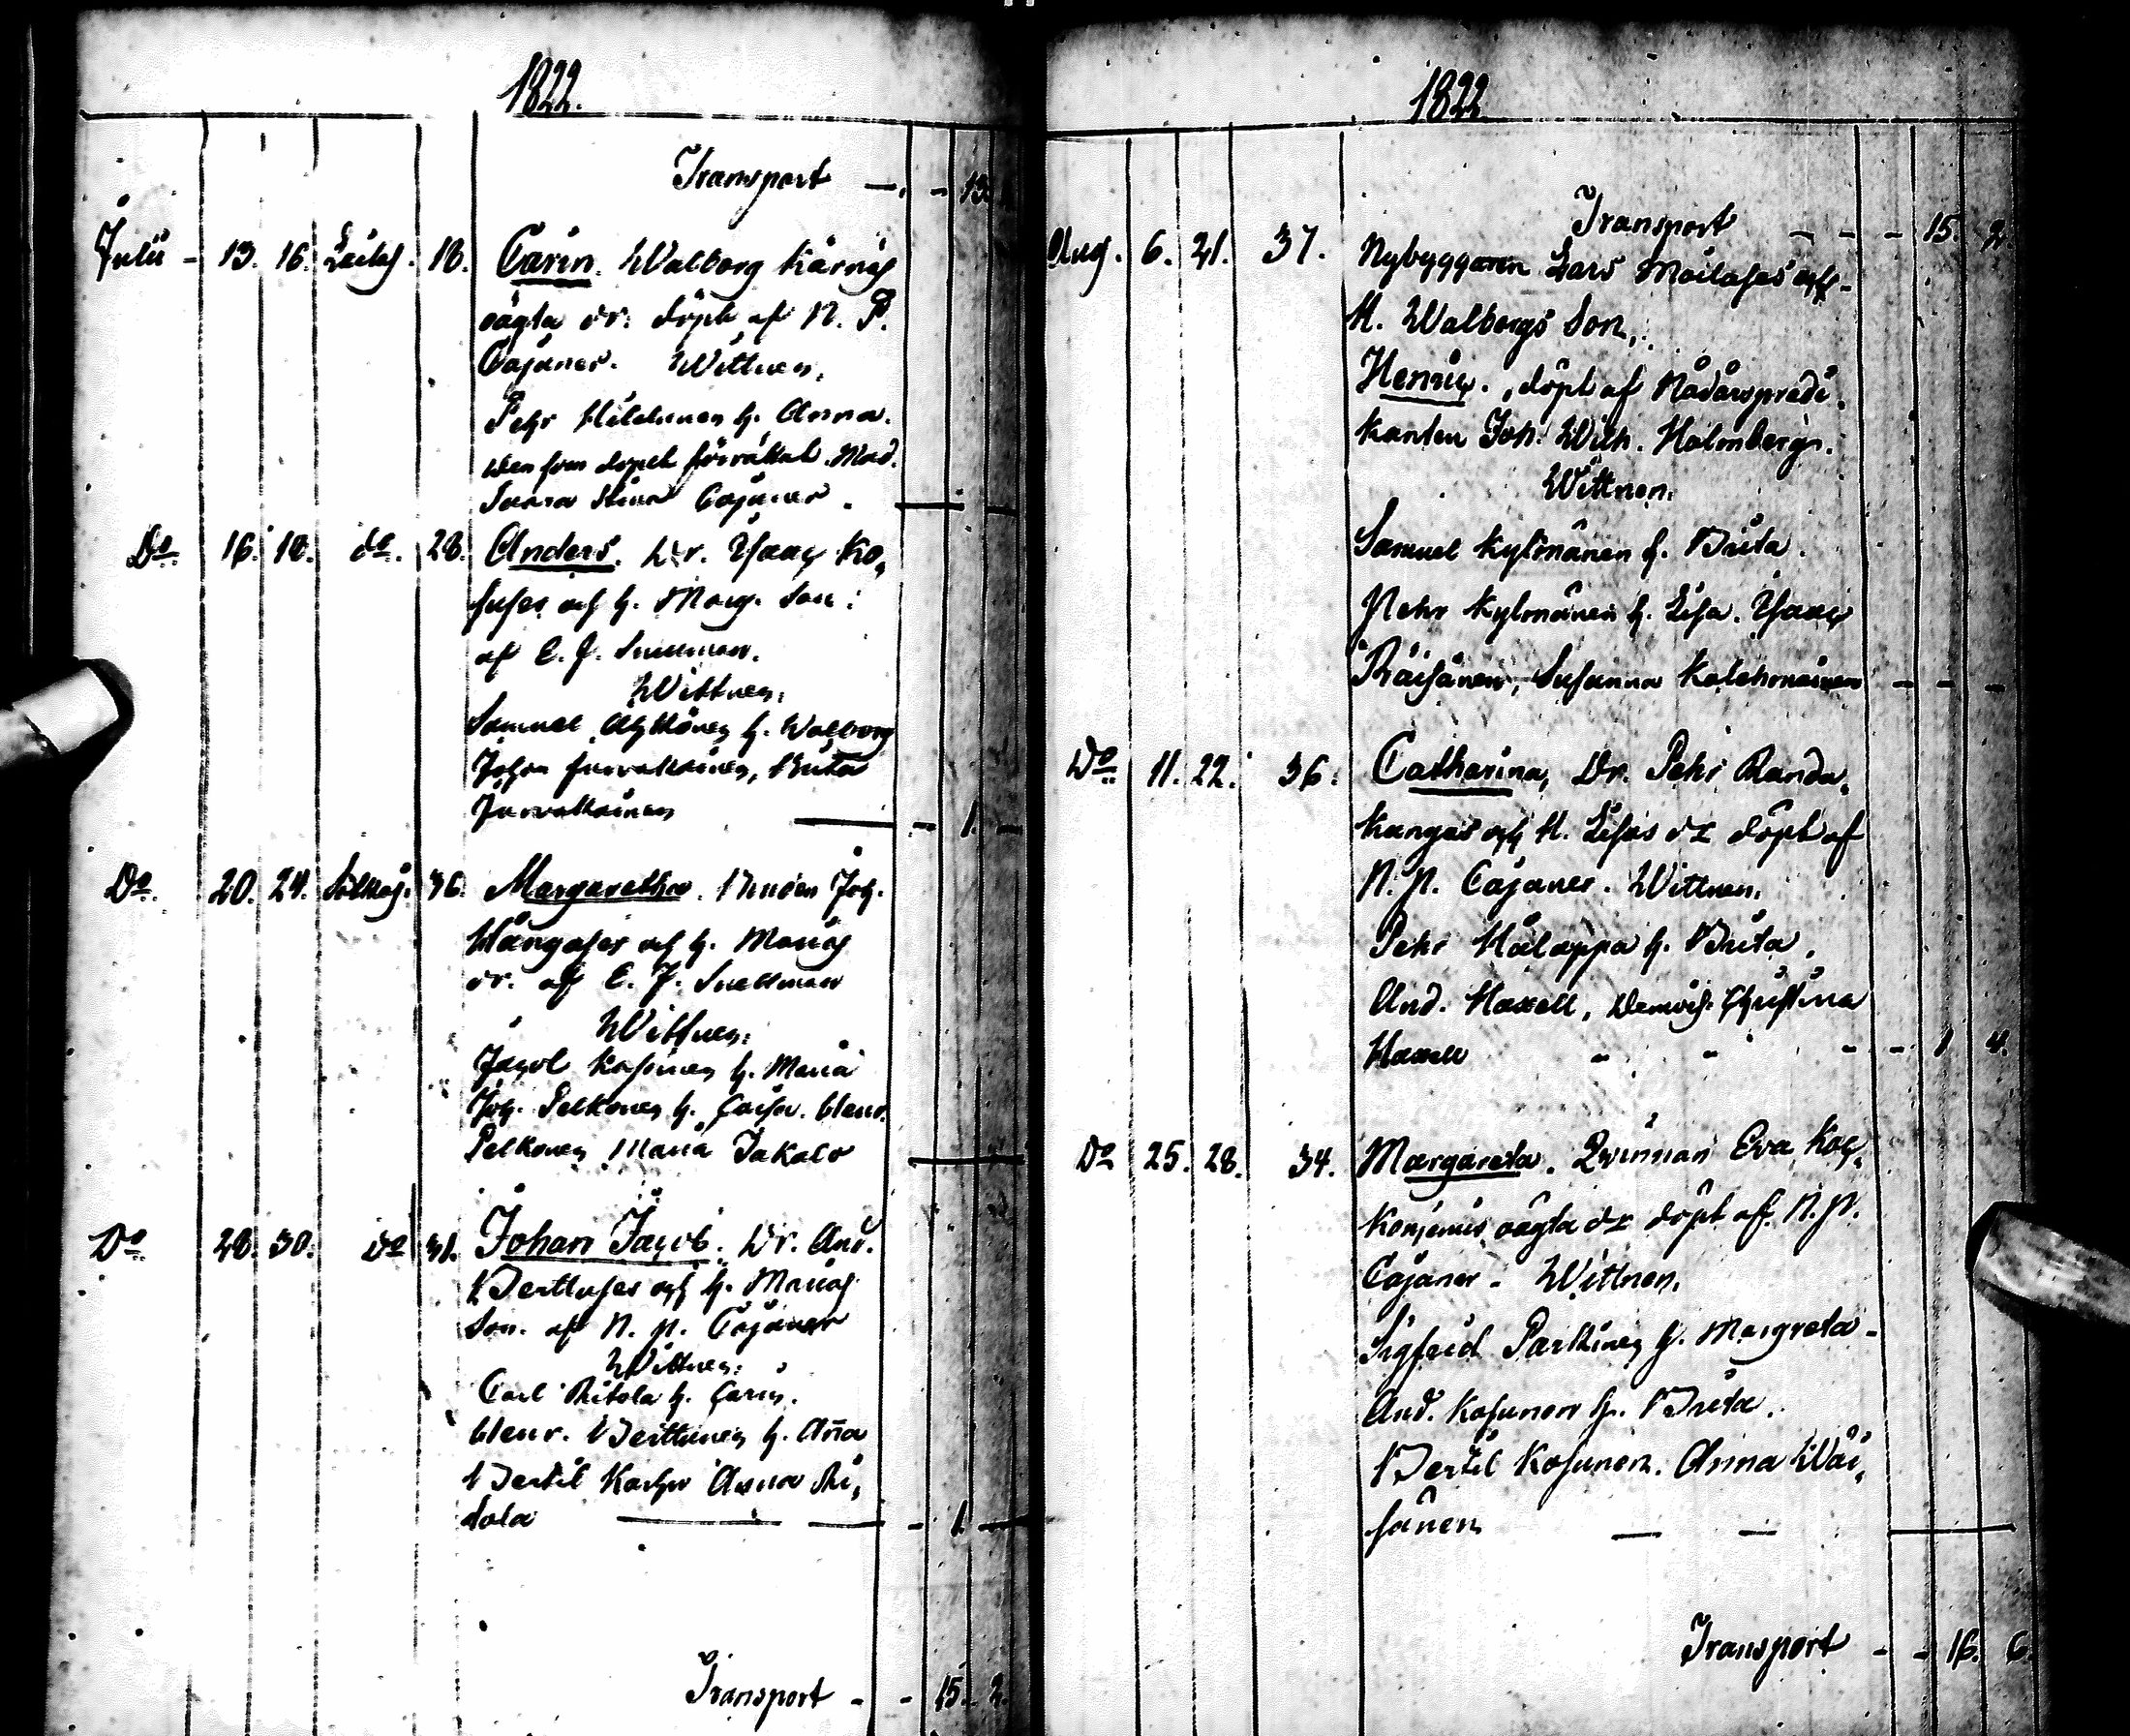 1822.
Transport - - 13.
Julii - 13. 16. 18. Carin. Walborg Kärnäs
oägta dr: döpt af N. P.
Cajaner. Wittnen.
Pehr h. Anna.
som dopet förrättat. Mad.
Stina Cajaner.
Do 16. 18. do. 28. Anders. Dr. Isaac Ko,
och h. Marg. Son:
af E. J. Snellman.
Wittnen:
Samuel h. Walborg
Johan Juvakainen, Brita
Juvakainen - 1. -
Do. 20. 24. 36. Margaretha. Bonden Joh.
och h. Marias
dr. af E. J. Snellman
Wittnen:
Jacob h. Maria
Joh. Pelkonen h. Caisa. Henr.
Pelkonen Maria Jakalo
Do 28. 30. Do 31. Johan Jacob. Dr. And.
och h. Marias
Son. af N. P. Cajaner
Wittnen:
Carl Ritola h. Carin.
Henr. Berttunen h. Anna
Bertil Anna Ri,
tola - 1. -
Transport - - 15. 2.
1822
Transport - - - 15. 2.
Aug. 6. 21. 37. Nybyggaren Lars Moilases och
H. Walborgs Son,
Henric., döpt af Nådårspredi,
kanten Joh. Wilh. Holmberg.
Wittnen.
Samuel Kylmänen h. Brita.
Pehr Kylmänen h. Lisa. Isaac
Räisänen, Susanna Kolehmainen - - -
Do 11. 22. 36. Catharina, Dr. Pehr Randa,
kangas och H. Lisas dr döpt af
N. P. Cajaner. Wittnen.
Pehr Hälappa h. Brita.
And. Haxell, Demois. Christina
Haxell - - - - 1 4.
Do 25. 28. 34. Margareta. Qvinnan Eva
oägta dr döpt af N. P.
Cajaner. Wittnen.
Sigfrid Partinen h. Margreta -
And. Kosunen h. Brita.
Bertil Kosunen. Anna Wäi,
sänen - -
Transport - - 16. 6.